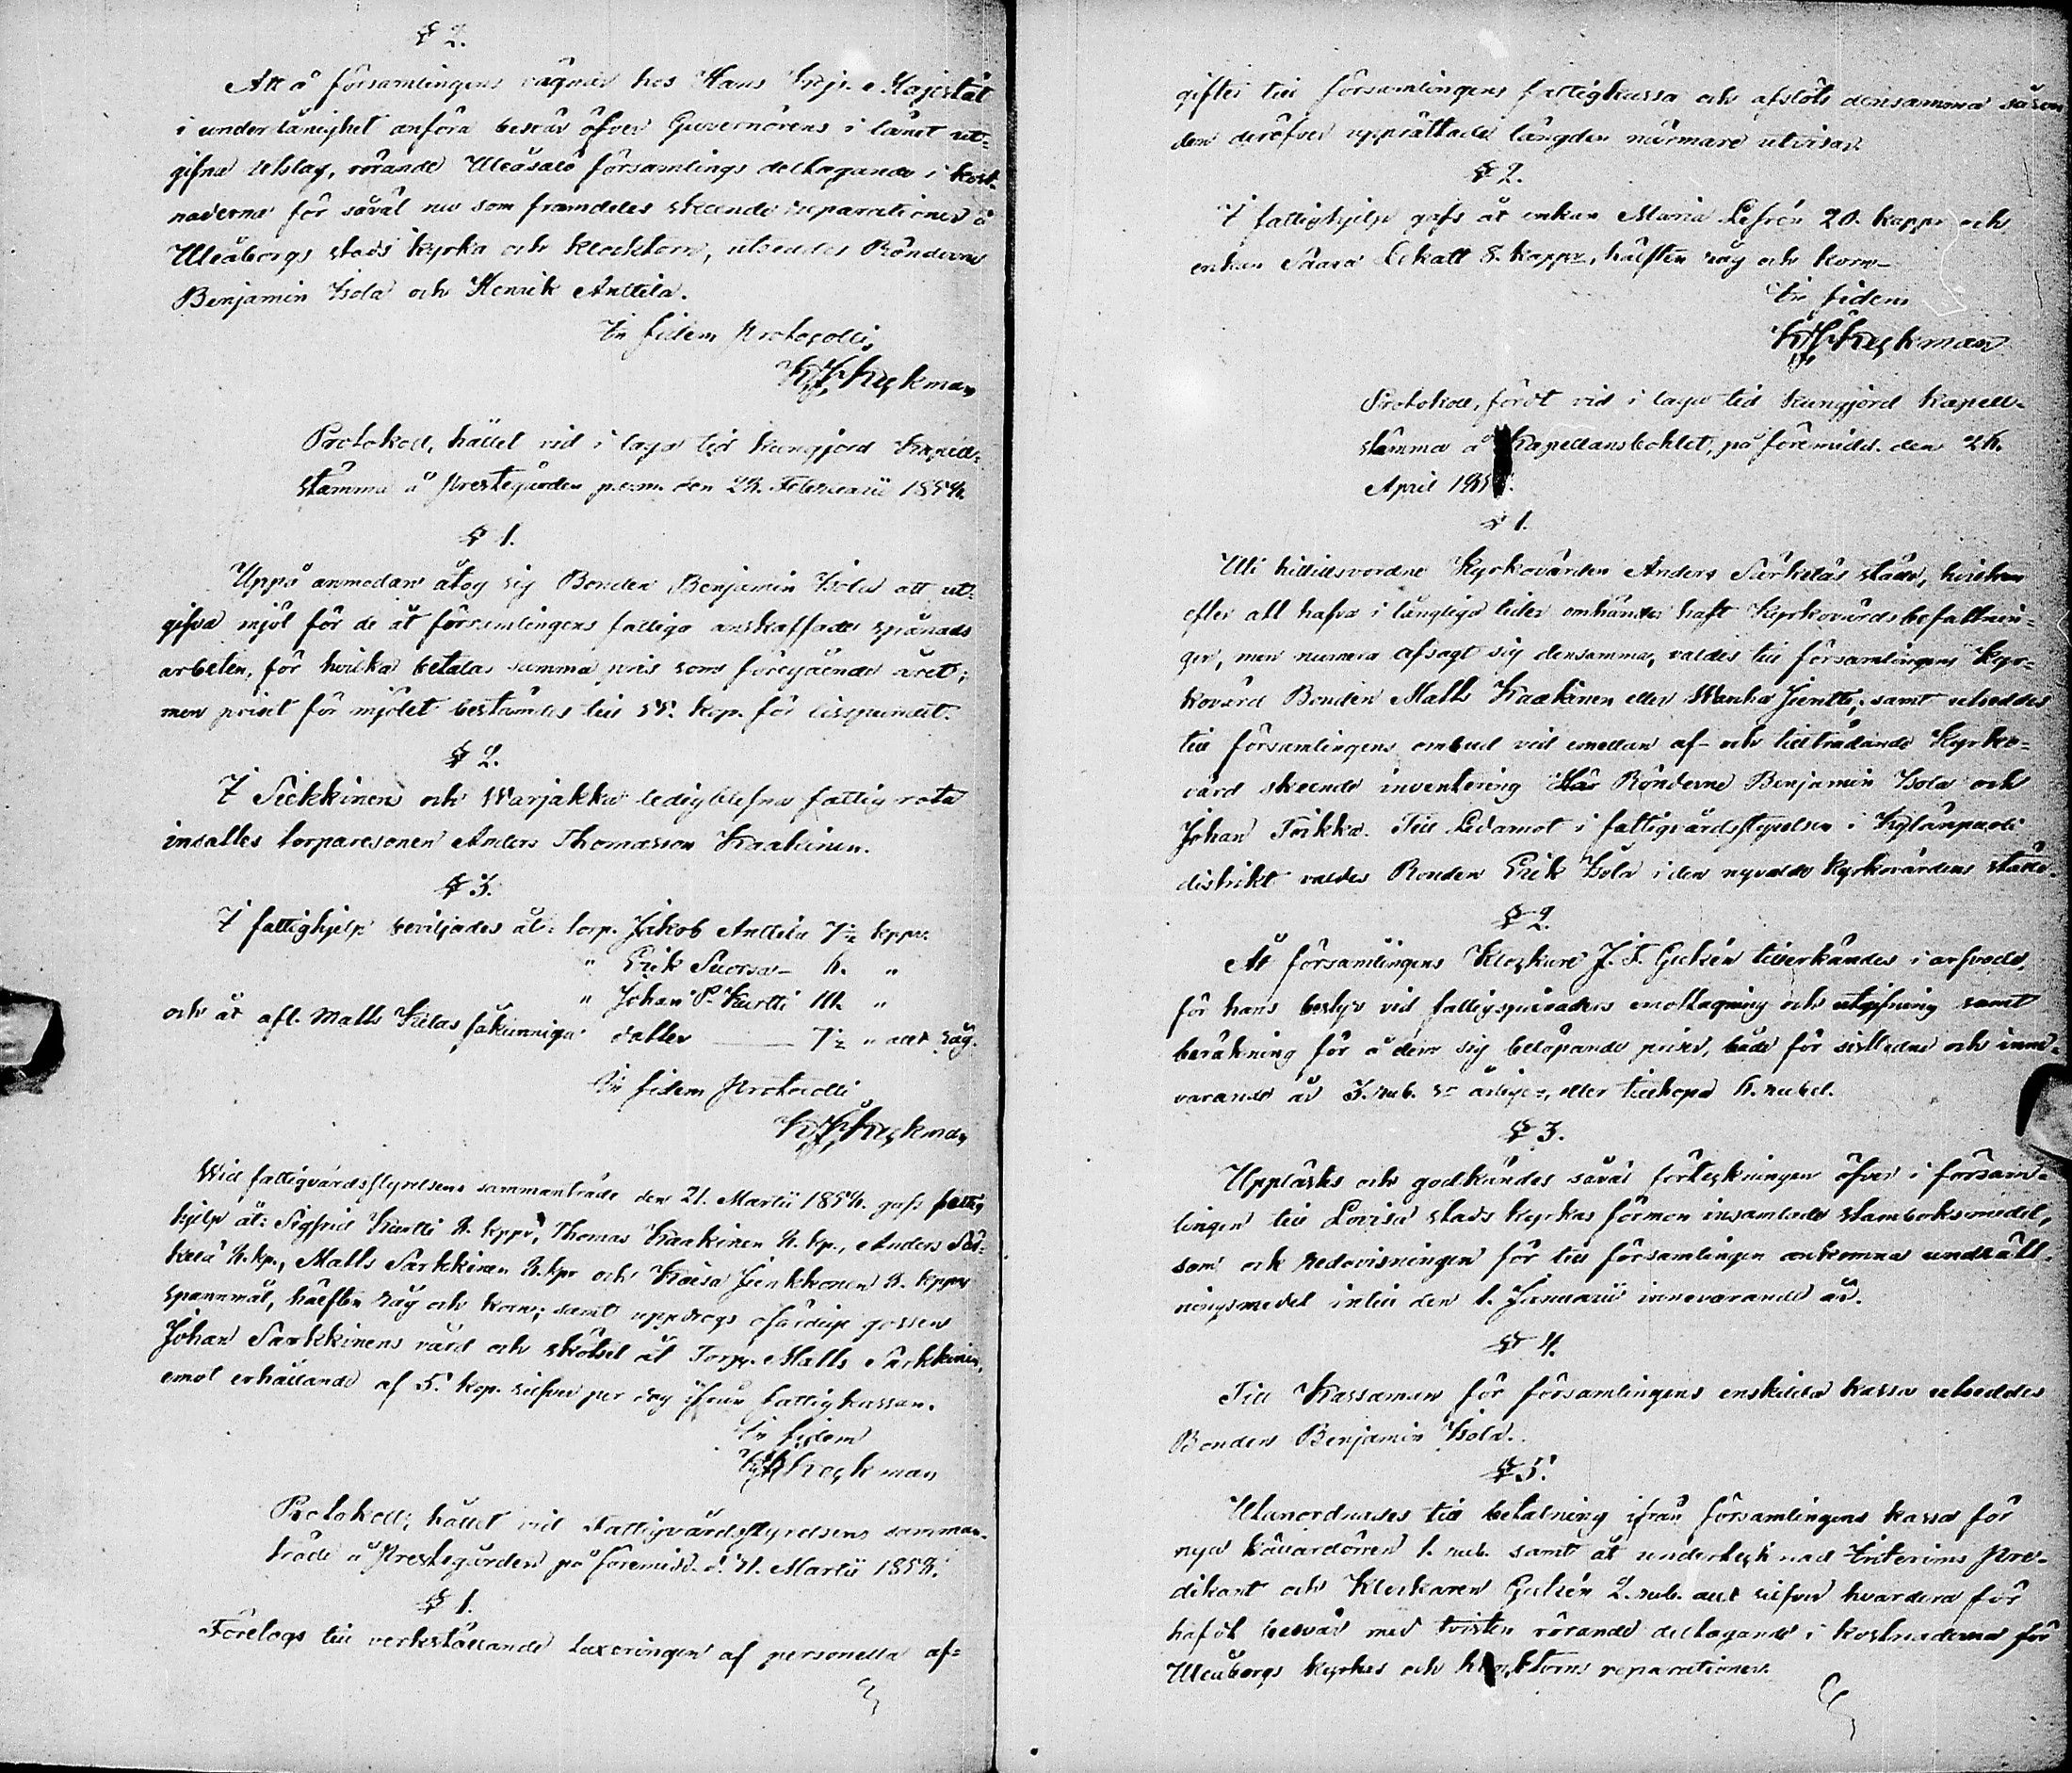 § 2.
Att å församlingens vägnar hos Hans Kejs. Majestät
i underdånighet anföra besvär öfver Guvernörens i länet ut-
gifna Utslag, rörande Uleåsalo församlings deltagande i kost-
naderna för såväl nu som framdeles skeende reparationer å
Uleåborgs stads kyrka och klocktorn, utsendes Bönderne
Benjamin Isola och Henrik Anttila.
In fidem Protocolli,
Heckman
Protokoll, hållet vid i laga tid kungjord Kapell-
stämma å Prestegården p.s.m. den 23. Februarii 1854.
§ 1.
Uppå anmodan åtog sig Bonden Benjamin Isola att ut-
gifva mjöl för de åt församlingens fattiga anskaffade spånads
arbeten, för hvilka betalas samma pris som föregående året;
men priset för mjölet bestämdes till 55. kop. för lisspundet.
§ 2.
I Siekkinens och Warjakka ledigblefna fattig rota
insattes torparesonen Anders Thomasson Kaakinen.
§ 3.
I fattighjelp beviljades åt: torp. Jakob Anttila 7½ kppr.
" Erik Suorsa – 6. "
" Johan P. Kurtti 10. "
och åt afl. Matts Kielas fåkunniga dotter — 7½ " allt råg.
In fidem Protocolli
Heckman
Wid fattigvårdsstyrelsens sammanträde den 21. Martii 1854. gafs fattig
hjelp åt: Sigfrid Kurtti 8. kppr, Thomas Kaakinen 8. kp., Anders Sär-
kelä 8. kp., Matts Sarkkinen 8. kpr och Kaisa Junkkonen 8. kppr
spannmål, hälften råg och korn; samt uppdrogs ofärdige gossen
Johan Sarkkinens vård och skötsel åt Torp. Matts Sarkkinen,
emot erhållande af 5. kop. silfver per dag ifrån fattigkassan.
In fidem
Heckman
Protokoll, hållet vid Fattigvårdsstyrelsens samman-
träde å Prestegården på föremidd. d. 21. Martii 1854.
§ 1.
Företogs till verkställande taxeringen af personella af-
gifter till församlingens fattigkassa och afslöts densamma såsom
den deröfver upprättade längden närmare utvisar.
§ 2.
I fattighjelp gafs åt enkan Maria Lefrén 20. kappr och
enkan Saara Lekatt 8. kappr, hälften råg och korn –
In fidem
Heckman
Protokoll, fördt vid i laga tid kungjord kapell-
stämma å Kapellansbohlet, på förmidd. den
April
§ 1.
Uti hittillsvordne Kyrkovärden Anders Särkeläs ställe, hvilken
efter att hafva i långliga tider omhänder haft Kyrkovärdsbefattnin-
gen, men numera afsagt sig densamma, valdes till församlingens Kyr-
kovärd Bonden Matts Kaakinen eller Wanha Jientti; samt utseddes
till församlingens ombud vid emellan af- och tillträdande Kyrko-
värd skeende inventering Bönderne Benjamin Isola och
Johan Toikka. Till Ledamot i fattigvårdsstyrelsen i Kylänpuoli
distrikt valdes Bonden Erik Isola i den nyvalde kyrkovärdens ställe.
§ 2.
Åt församlingens Klockare J. F. Gulsén tillerkändes i arfvode,
för hans bestyr vid fattigspinnadens emottagning och utgifning samt
beräkning för å dem sig belöpande priser, både för sistledne och inne-
varande år 3. rub. sr årligen, eller tillhopa 6. rubel.
§ 3.
Upplästes och godkändes såväl förteckningen öfver i försam-
lingen till Lovisa stads kyrkas förmon insamlade stamboksmedel,
som ock redovisningen för till församlingen ankomna undsätt-
ningsmedel intill den 1. Januarii innevarande år.
§ 4.
Till Kassaman för församlingens enskilda kassa utseddes
Bonden Benjamin Isola.
§ 5.
Utanordnades till betalning ifrån församlingens kassa för
nya källardörren 1. rub. samt åt undertecknad Interims Pre-
dikant och Klockaren Gulsén 2. rub. allt silfver hvardera för
hafdt besvär med tvisten rörande deltagande i kostnaderna för
Uleåborgs kyrkas och klocktorns reparationer.